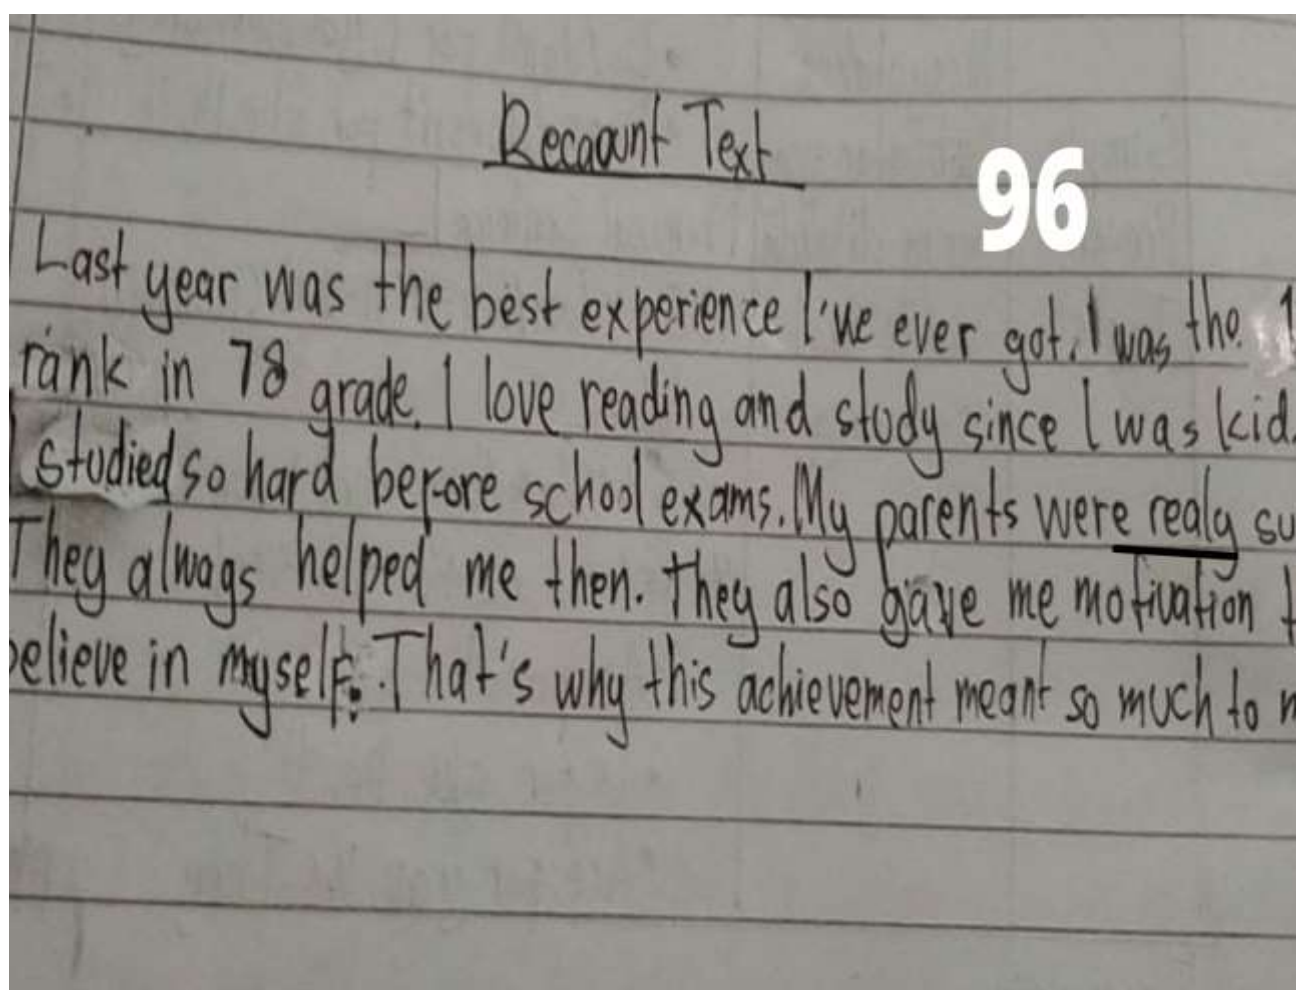 Recount Text
96
Last year was the best experience I've ever got. I was the 1
rank in 78 grade. I love reading and study since I was kid.
I studied so hard before school exams. My parents were realy su
They always helped me then. They also gave me motivation t
believe in myself. That's why this achievement meant so much to m